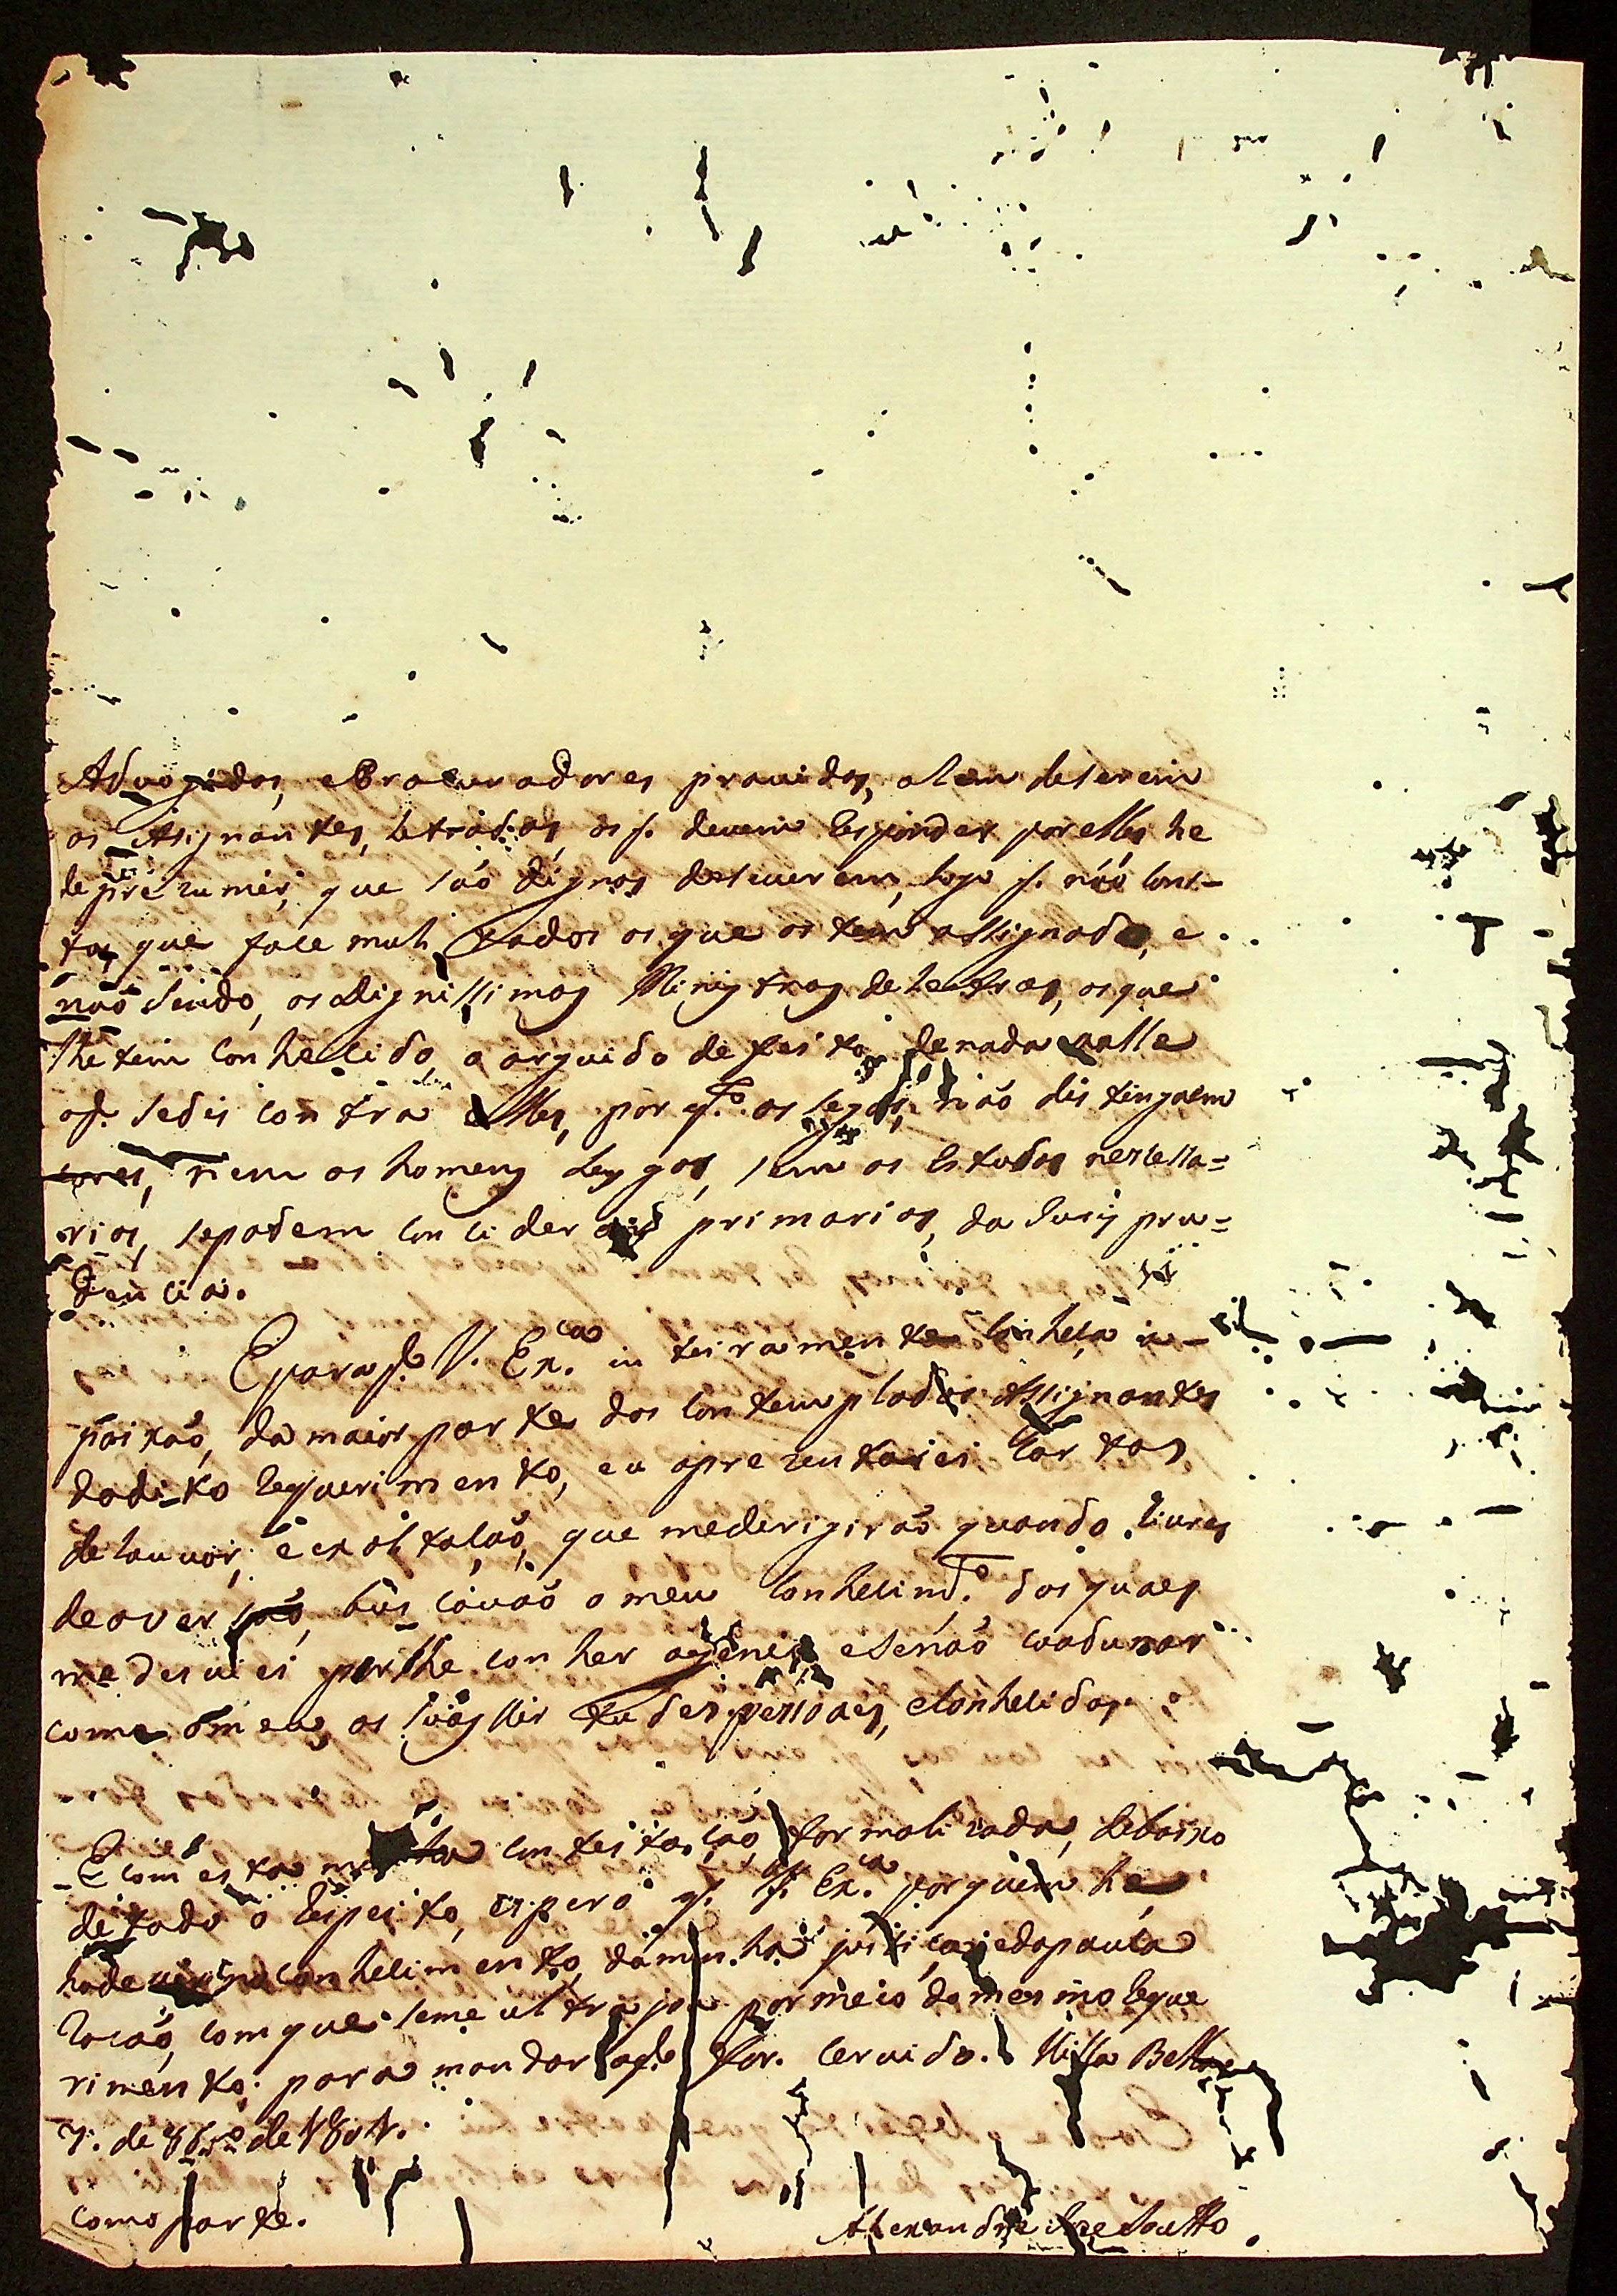 Advogados, e Procuradores provídos, alem deserem
os Assignantes, letrados, os q. devem Responder porelles he
de prezumir, que saó dignos deseuerem, logo q. naó cons-
ta, que face mah fados os que os tem assignado, e
naó sendo, os dignissimos Ministros de letras, os que
lhe tem conhecido o arguido defeito, de nada valle
oq. sediz contra elles, por q.to os legos, naó distinguem
cores, nem os homens Leygos, sem os Estudos nesessa=
rios, sepodem considerar primarios, da Jurispru=
dencia.
Epara q. V. Ex.ca inteiramente conheça a
paixaó, da maior parte dos contemplados Assignantes
dodito Requerimento, eu aprezentarei Cartas
de louvor, e exaltaçaó, que mederigiraó quando livres
de aversaó, buscavaó o meu conhecim.to dos quaes
me desviei por lhe conher o genio, esenaó coadunar
com o meu, os suas vir tudes pessoaes, e conhecidas.
E com esta minha contestaçaó formalizada, debaixo
de todo o Respeito, espero q. V. Ex.ca por quem he
hade vir no conhecimento, daminha justiça, edapouca
Rezaó, com que seme ultraja por meio do mesmo Reque
rimento: para mandar oq. for. servido. Villa Bella
7. de 8br.o de 1804.
como parte.
Alexandre Joze Soutto